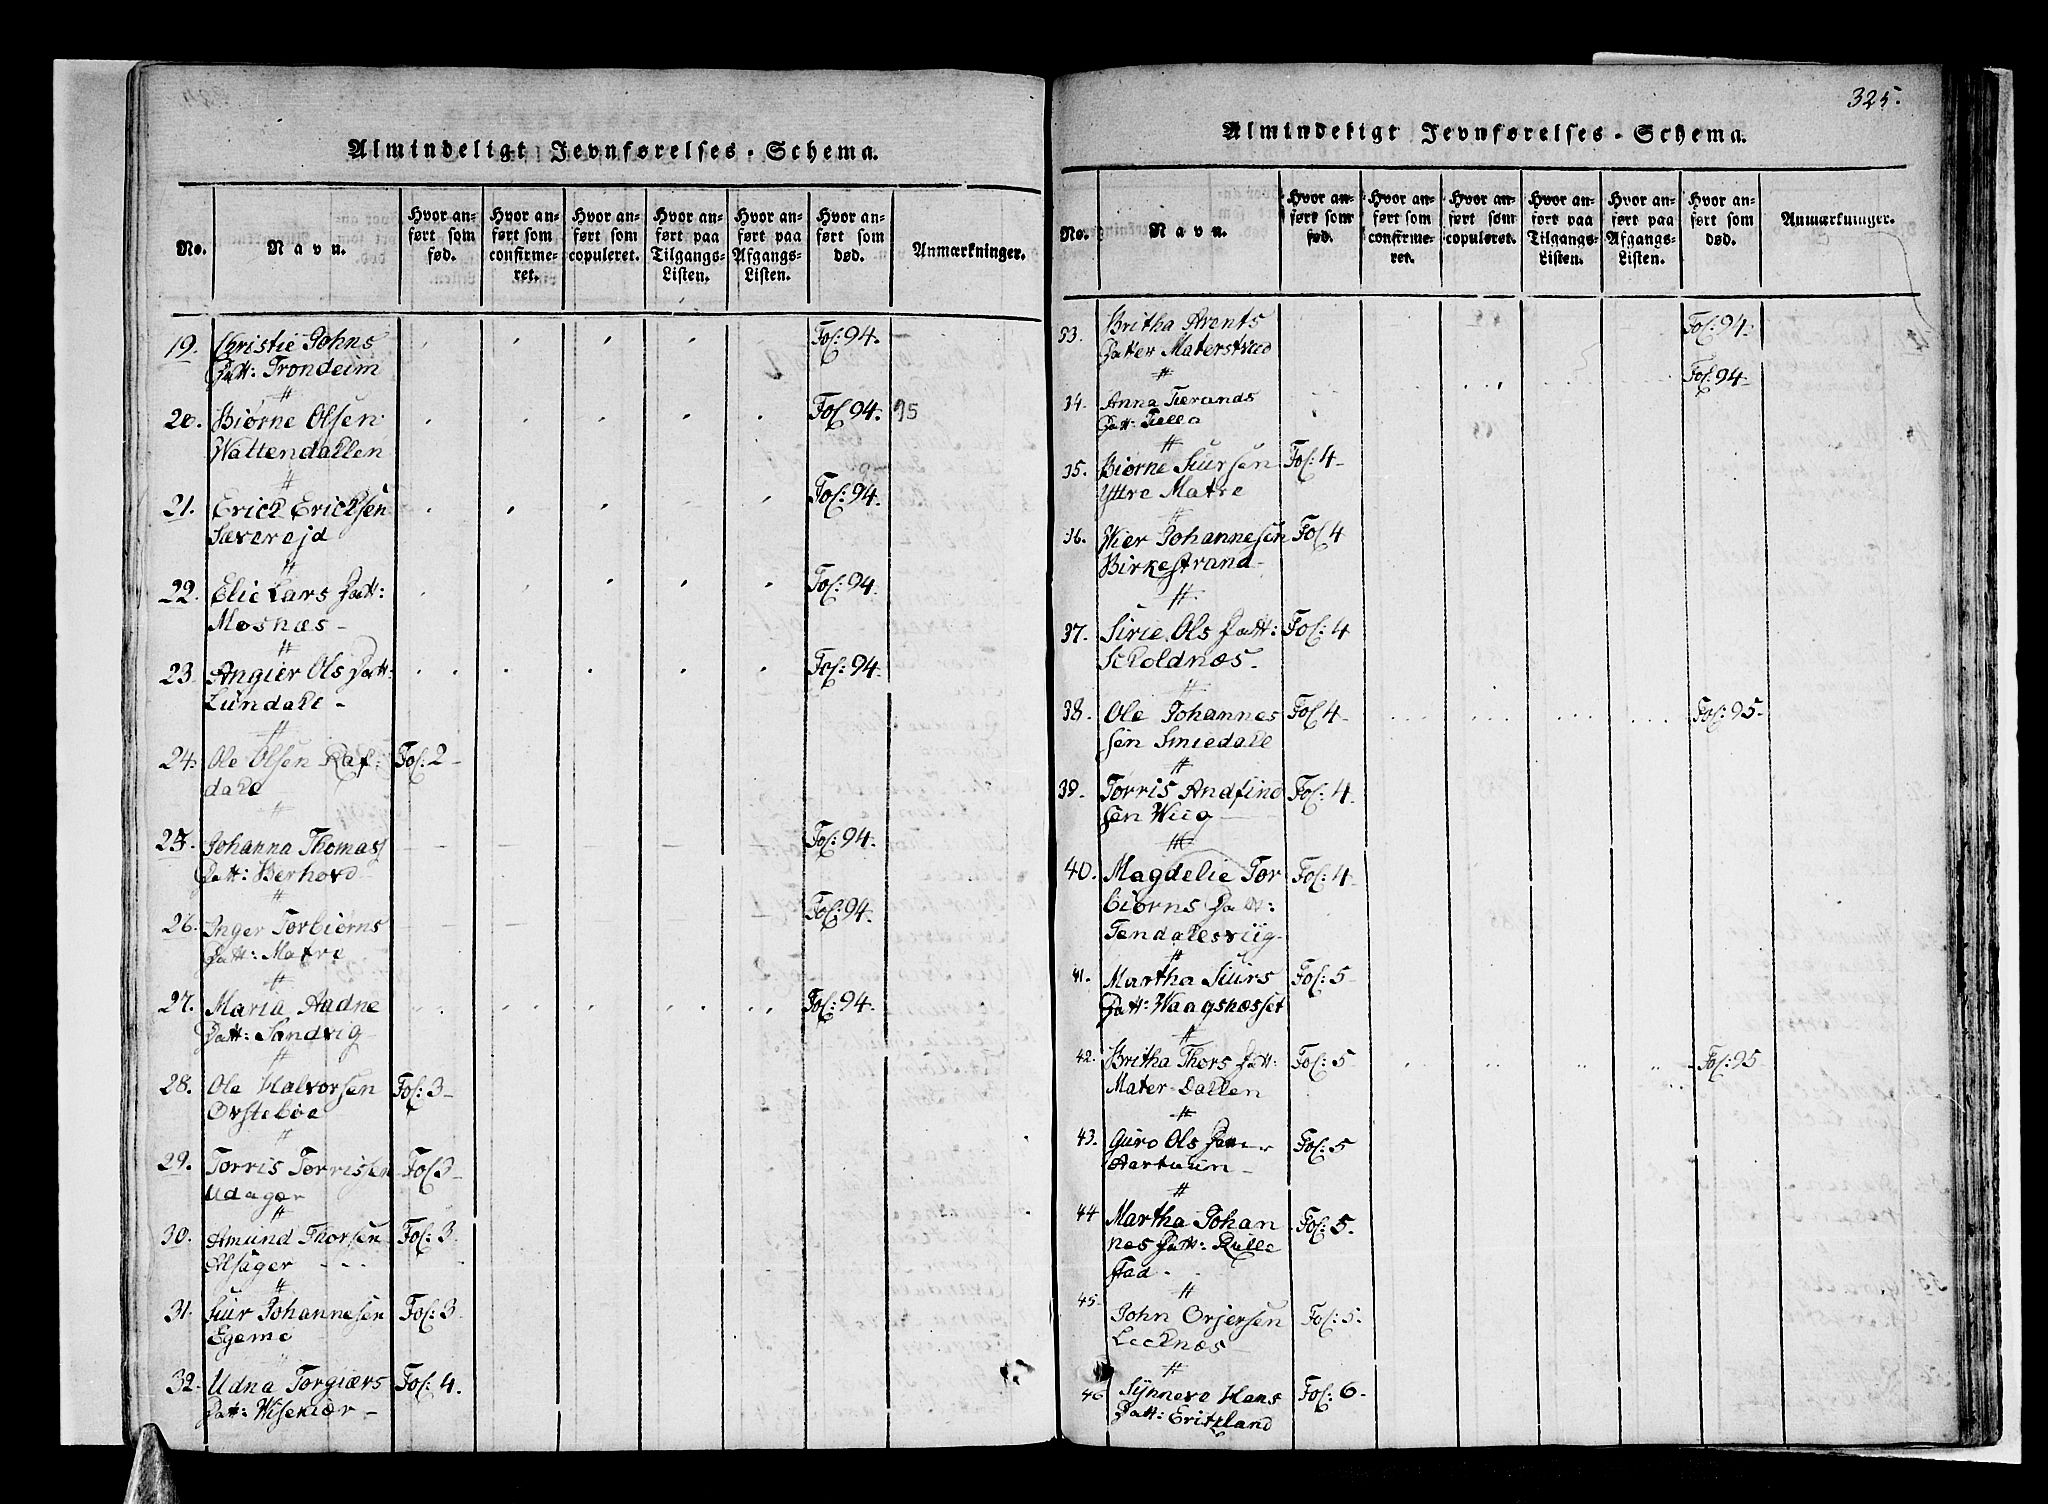 Almindeligt Jevnførelses-Schema.
No.
Navn.
Hvor anført som fød.
Hvor anført som confirmeret.
Hvor anført som copuleret.
Hvor anført paa Tilgangs-Listen.
Hvor anført paa Afgangs-Listen.
Hvor anført som død.
Anmærkninger.
19. Christie Johns Fol: 94.
Datt: Trondeim
20. Biørne Olsen Fol 94. 95
Wattendallen
21. Erick Ericksen Fol: 94.
Sæverejd
22. Elie Lars Datt: Fol: 94.
Mosnæs
23. Angier Ols Datt: Fol: 94.
Lundahl
24. Ole Olsen Raf- Fol: 2
dahl
25. Johanna Thomas Fol: 94.
Datt: Berhovd
26. Inger Torbiørns Fol: 94.
Datt: Matre
27. Maria Aadne Fol: 94.
Datt: Sandvig
28. Ole Halvorsen Fol: 3
Ørsteböe
29. Torris Torrissen Fol 3
Udager
30. Amund Thorsen Fol: 3
Alsager
31. Siur Johannesen Fol: 3
Egeme
32. Udna Torgiærs Fol: 4.
Datt:
325.
Almindeligt Jevnførelses-Schema.
No.
Navn.
Hvor anført som fød.
Hvor anført som confirmeret.
Hvor anført som copuleret.
Hvor anført paa Tilgangs-Listen.
Hvor anført paa Afgangs-Listen.
Hvor anført som død.
Anmærkninger.
33. Britha Arents Fol: 94.
Datter
34. Anna Fol: 94
Datt:
35. Biørne Siursen Fol: 4
Yttre Matre
36. Wier Johannesen Fol 4
Birkestrand
37. Sirie Ols Datt: Fol: 4
Skoldnæs.
38. Ole Johannes Fol 4 Fol: 95
sen Smedahl
39. Torris Andfind Fol: 4.
sen Wiig
40. Magdelie Tor Fol: 4
biørns Datt:
Tendalsviig
41. Martha Siurs Fol: 5
Datt: Waagsnæsset
42. Britha Thors Datt: Fol: 5 Fol: 95
Mater-Dallen
43. Guro Ols Fol: 5
44 Martha Johan Fol: 5.
nes Datt: Rulle
stad
45. John Orjersen Fol: 5.
Leeknæs
46 Synneve Hans Fol: 6
Datt: Eritzland